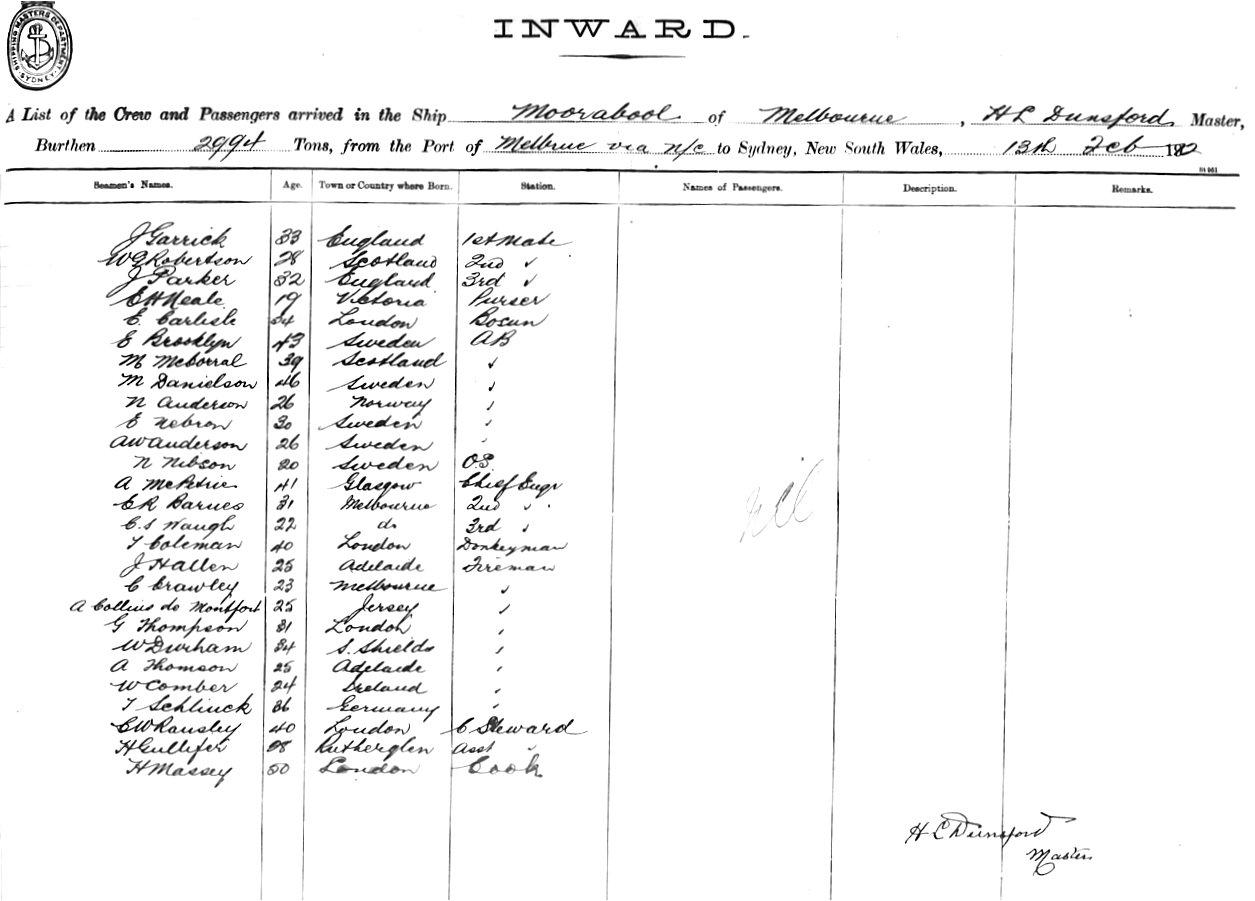 SHIPPING MASTERS DEPARTMENT SYDNEY
INWARD.
A List of the Crew and Passengers arrived in the Ship Moorabool of Melbourne, H L Dunsford Master,
Burthen 2994 Tons, from the Port of Melbrne via N/C to Sydney, New South Wales, 13th Feb
Seamen's Names. Age. Town or Country where Born. Station. Names of Passengers. Description. Remarks.
J Garrick 33 England 1st Mate
W G Robertson 28 Scotland 2nd ✓
J Parker 32 England 3rd ✓
E H Neale 19 Victoria Purser
E. Carlisle 34 London Bosun
E Brooklyn 43 Sweden AB
M 39 Scotland ✓
M Danielson 46 Sweden ✓
N Anderson 26 Norway ✓
E 30 Sweden ✓
A W Anderson 26 Sweden ✓
N 20 Sweden O.S.
A McPetrie 41 Glasgow Chief Engr
E R Barnes 31 Melbourne 2nd ✓
C. S Waugh 22 do 3rd ✓
T Coleman 40 London Donkeyman
J Hallen 25 Adelaide Fireman
C Crawley 23 Melbourne ✓
A Collins de Montfort 25 Jersey ✓
G Thompson 31 London ✓
W Durham 34 S. Shields ✓
A Thomson 25 Adelaide ✓
W Comber 24 Ireland ✓
T Schlinck 36 Germany ✓
C W Ransley 40 London C Steward
H Gullifer Rutherglen Asst ✓
H Massey 50 London Cook
H L Dunsford
Master